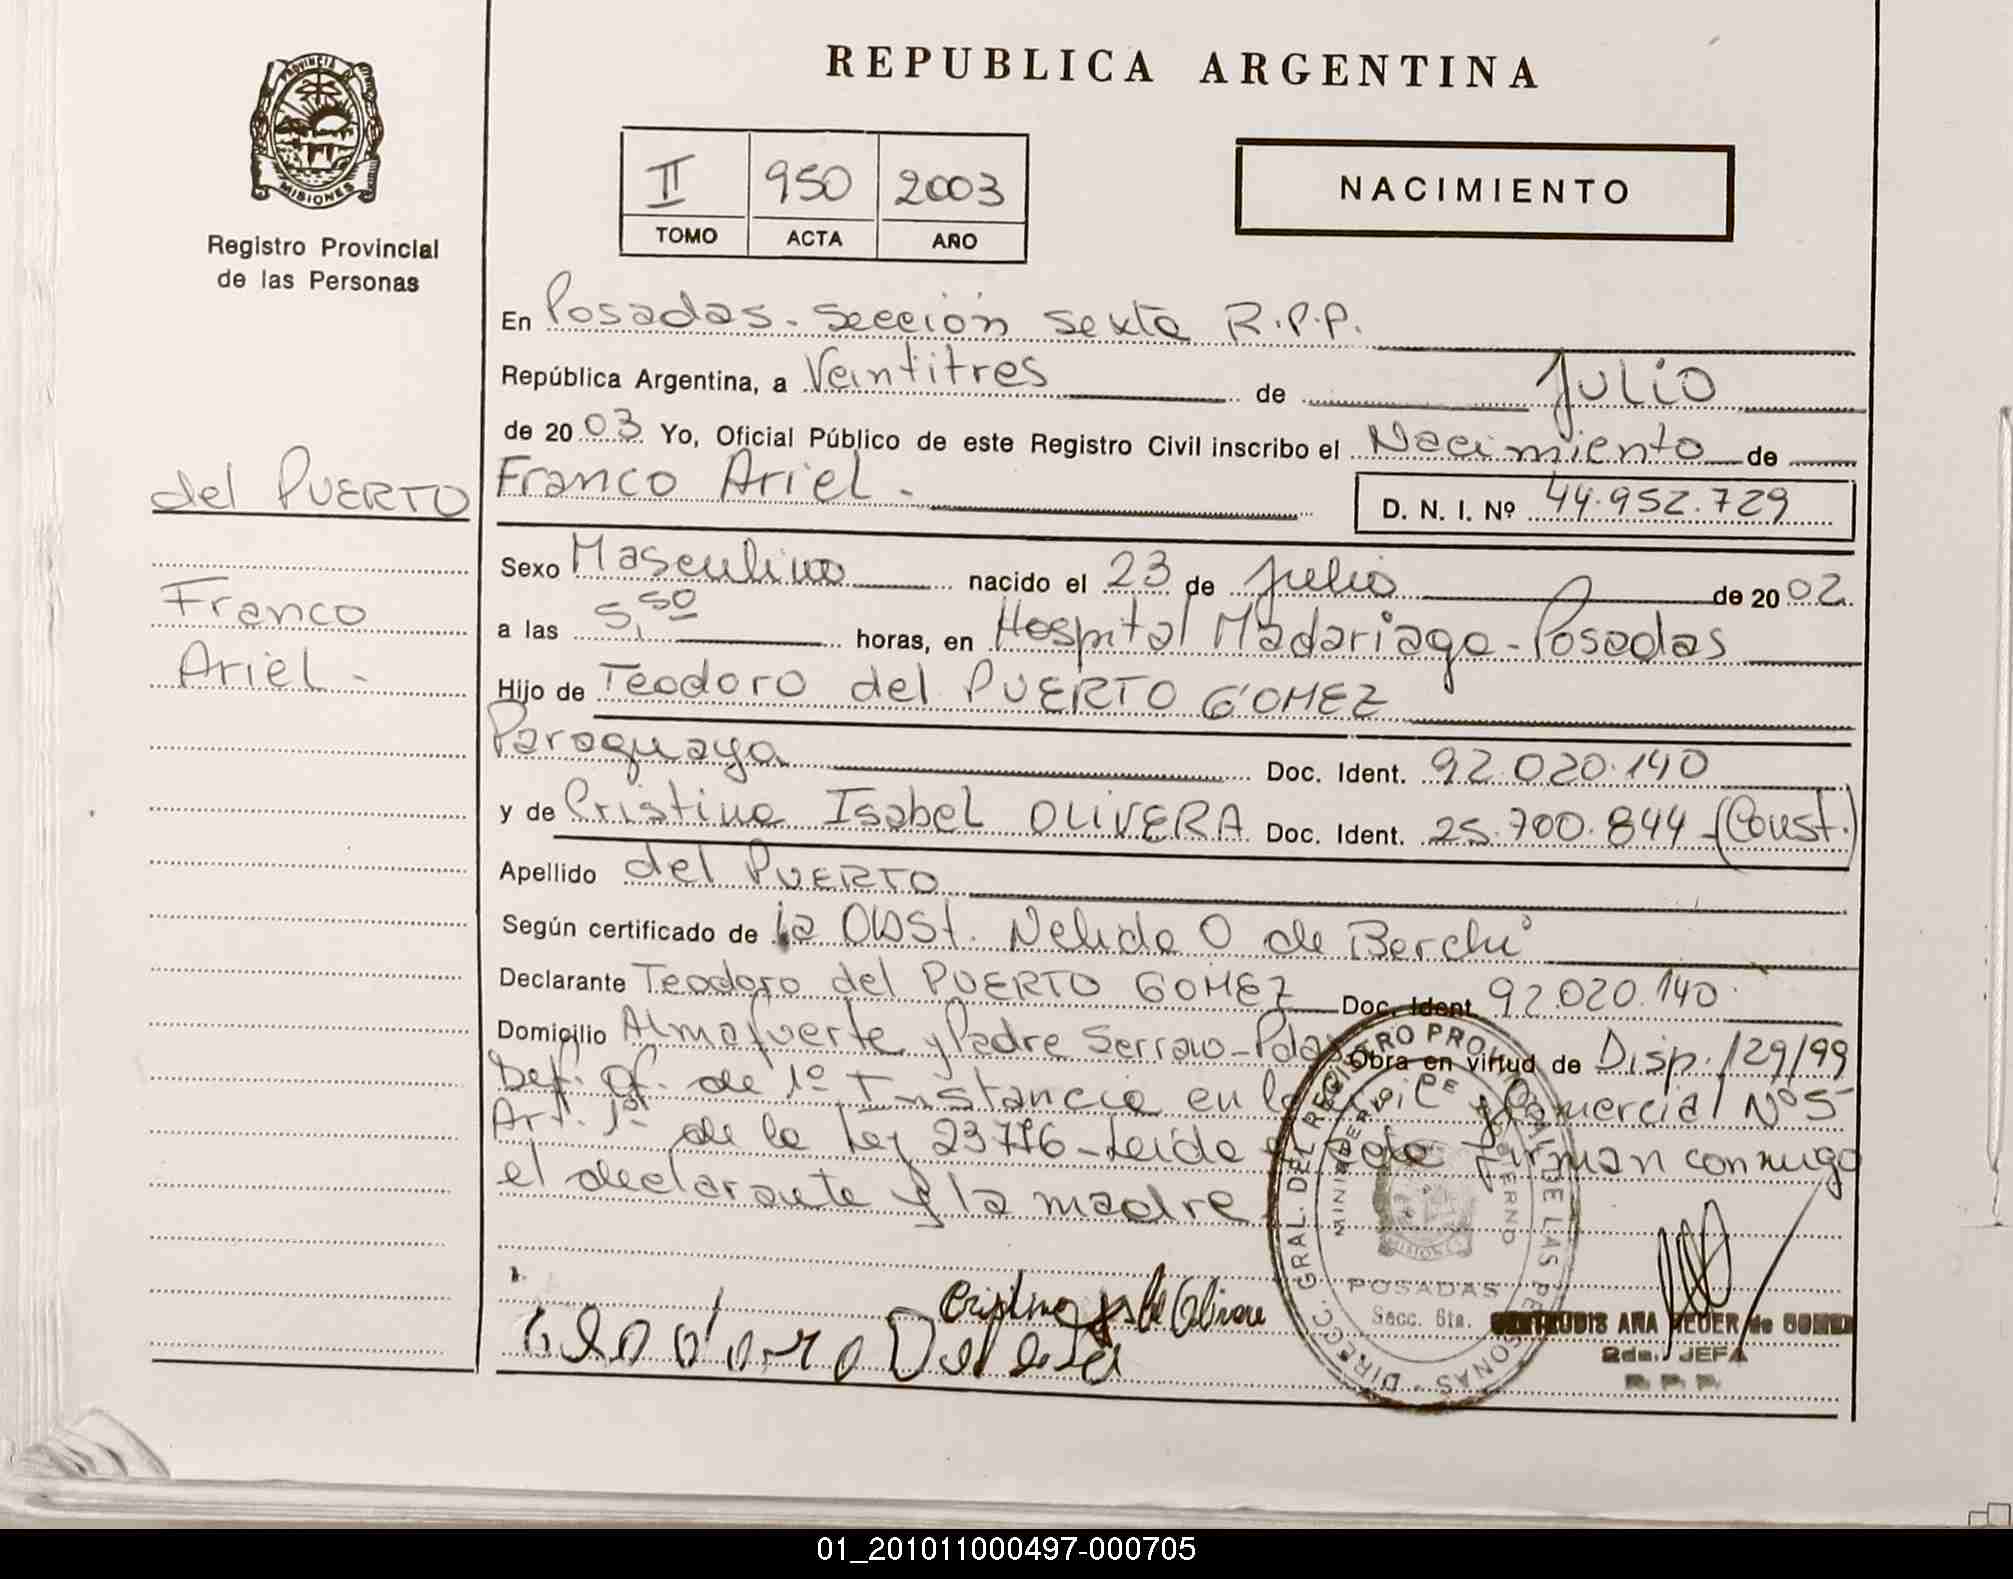 REPUBLICA ARGENTINA
PROVINCIA DE
MISIONES
Registro Provincial
de las Personas
II 950 2003
TOMO ACTA AÑO
NACIMIENTO
En Posadas - Sección Sexta R.P.P.
República Argentina, a Veintitres de Julio
de 2003 Yo, Oficial Público de este Registro Civil inscribo el Nacimiento de
del PUERTO
Franco Ariel.
D. N. I. Nº 44.952.729
Franco
Ariel.-
Sexo Masculino nacido el 23 de Julio de 2002
a las 5,50 horas, en Hospital Madariaga - Posadas
Hijo de Teodoro del PUERTO GOMEZ
Paraguaya Doc. Ident. 92.020.140
y de Cristina Isabel OLIVERA Doc. Ident. 25.700.844 - (Const.)
Apellido del PUERTO
Según certificado de la Obst. Nelida O de Berchi
Declarante Teodoro del PUERTO GOMEZ Doc. Ident. 92.020.140
Domicilio Almafuerte y Padre Serrano - Pdas Obra en virtud de Disp. 129/99
Def. Of. de 1º Instancia en lo Civil y Comercial Nº 5
Art. 1º de la Ley 23776 - Leida el Acta Firman conmigo
el declarante y la madre
DIRECC. GRAL. DEL REGISTRO PROVINCIAL DE LAS PERSONAS
MINISTERIO DE GOBIERNO
MISIONES
POSADAS
Secc. 6ta.
Cristina Olivera
Teodoro Del
GERTRUDIS ANA de GOMEZ
2da. JEFA
R. P. P.
01_201011000497-000705